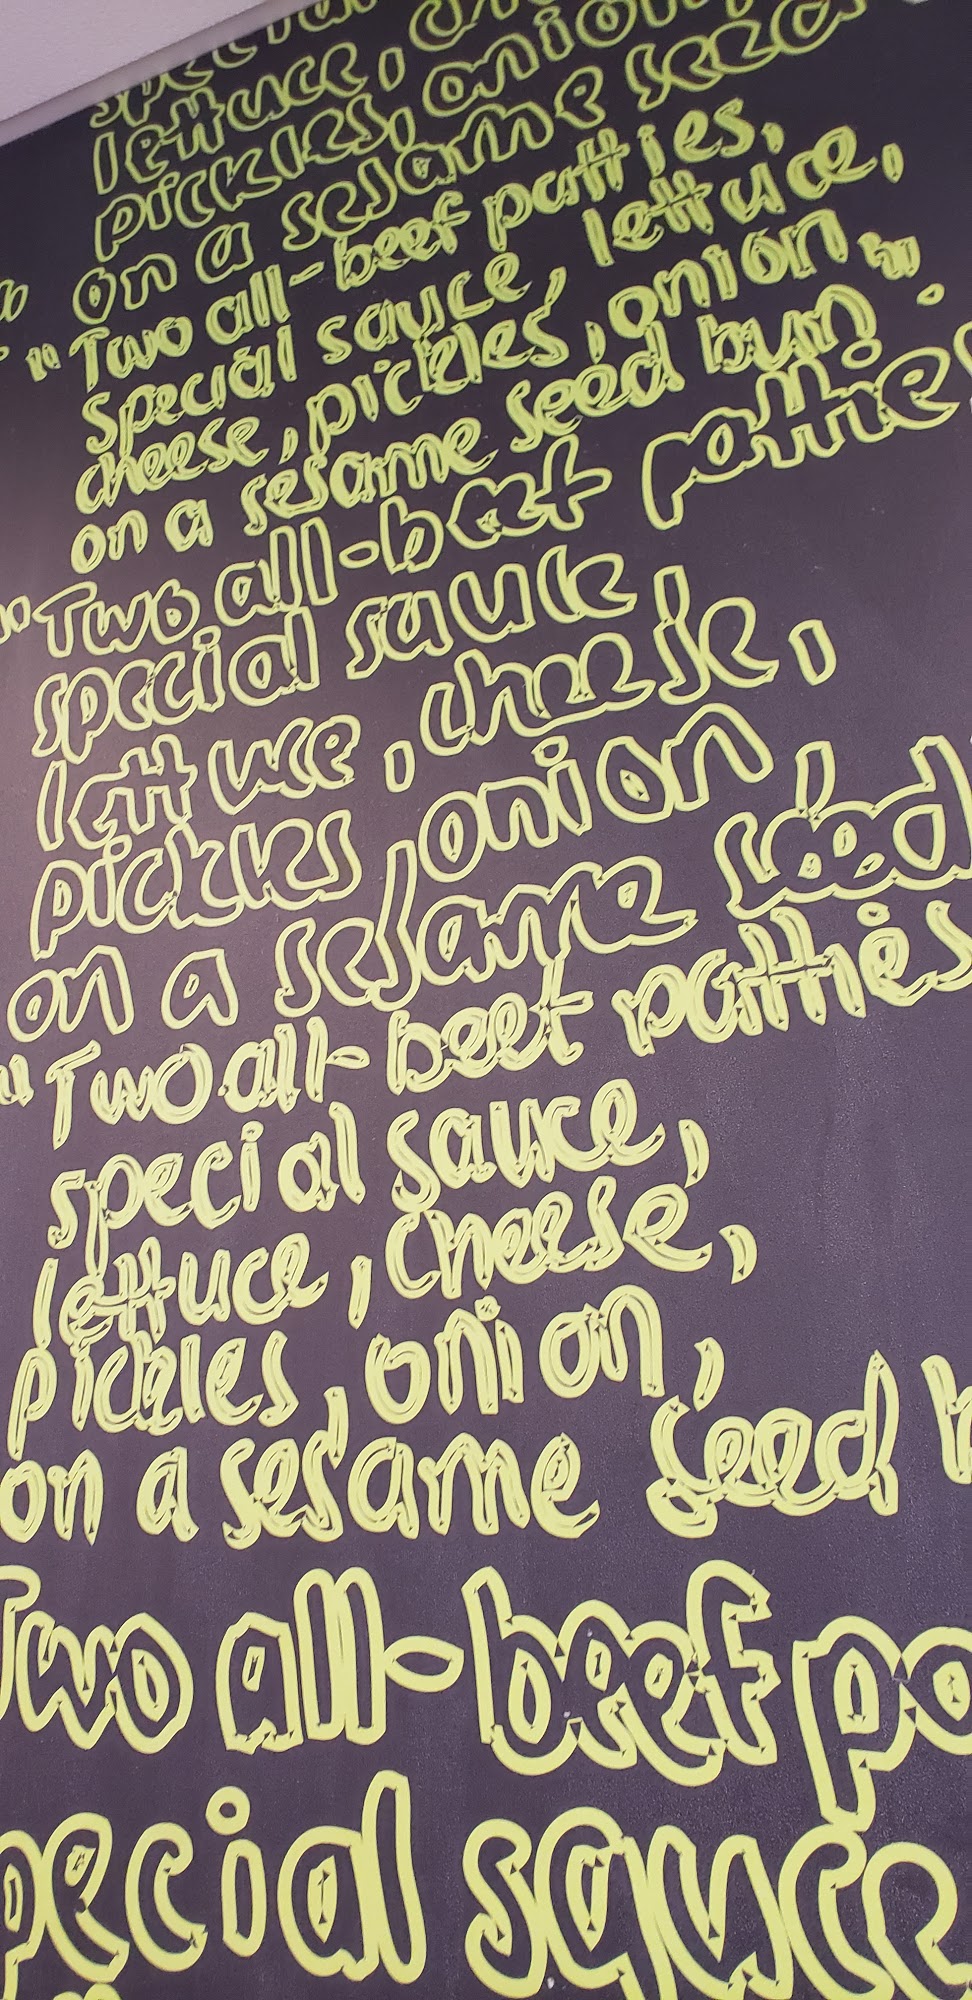 special
lettuce,
pickles, onion
on a sesame seed
"Two all-beef patties,
special sauce, lettuce,
cheese, pickles, onion,
on a sesame seed bun."
"Two all-beef pattie
special sauce,
lettuce, cheese,
pickles, onion,
on a sesame seed
"Two all-beef patties
special sauce,
lettuce, cheese,
pickles, onion,
on a sesame seed b
Two all-beef pa
pecial sauce